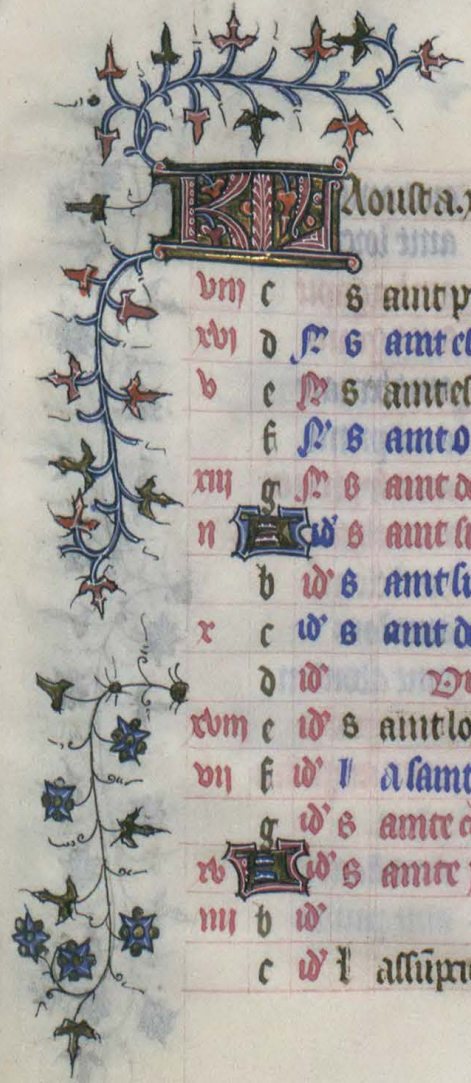 KL Aousta.x
viii c s aint p
xvi d N' s aint el
v e N' s aint el
f N' s aint o
xiii g N' s aint d
ii A id' s aint si
b id' s aint si
x c id' s aint d
d id' Vi
xviii e id' s aint lo
vii f id' l a saint
g id' s ainte c
xv A id' s ainte
iiii b id'
c id' l assūpci